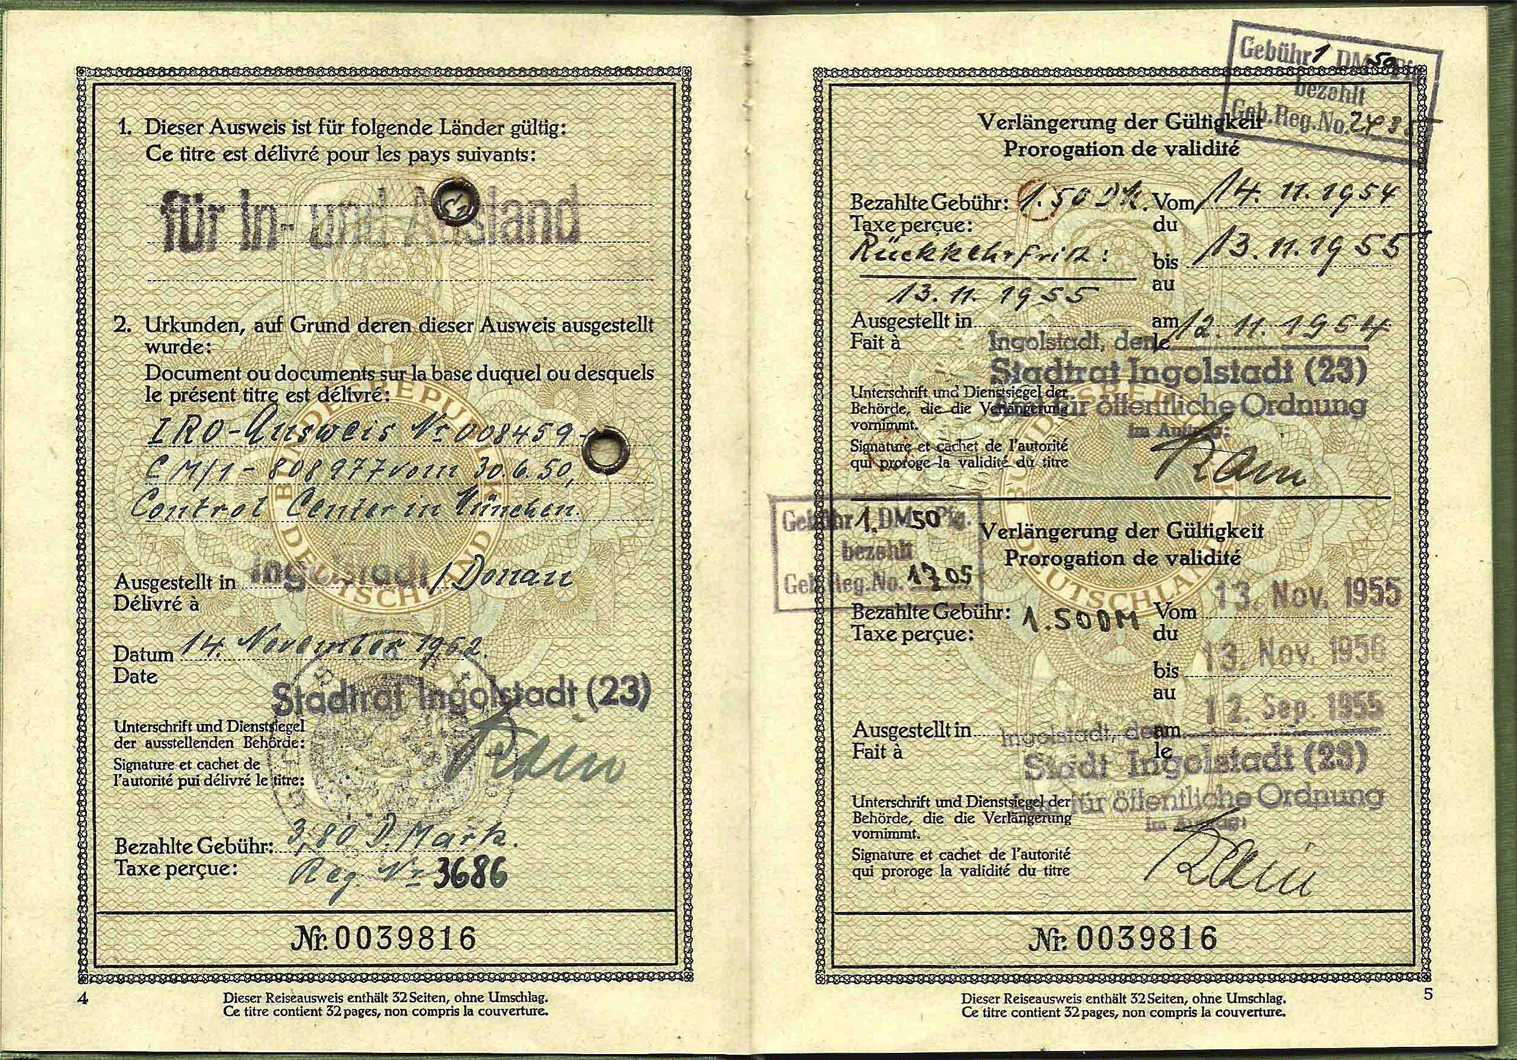 1. Dieser Ausweis ist für folgende Länder gültig:
Ce titre est délivré pour les pays suivants:
für In- und Ausland
2. Urkunden, auf Grund deren dieser Ausweis ausgestellt
wurde:
Document ou documents sur la base duquel ou desquels
le présent titre est délivré:
BUNDESREPUBLIK DEUTSCHLAND
IRO-Ausweis Nr 008459-
CM/1-808977 vom 30.6.50,
Control Center in München.
Ausgestellt in Ingolstadt/Donau
Délivré à
Datum 14. November 1952.
Date
Stadtrat Ingolstadt (23)
Unterschrift und Dienstsiegel
der ausstellenden Behörde:
Signature et cachet de
l'autorité pui délivré le titre:
Rain
Bezahlte Gebühr: 3,80 D.Mark.
Taxe perçue: Reg. Nr 3686
Nr. 0039816
4
Dieser Reiseausweis enthält 32 Seiten, ohne Umschlag.
Ce titre contient 32 pages, non compris la couverture.
Gebühr 1 DM 50 Pfg.
bezahlt
Geb.Reg.No. 2435
Verlängerung der Gültigkeit
Prorogation de validité
Bezahlte Gebühr: 1.50 DM. Vom 14.11.1954
Taxe perçue: du
Rückkehrfrist: bis 13.11.1955
13.11.1955 au
Ausgestellt in am 12.11.1954
Fait à Ingolstadt, den le
Stadtrat Ingolstadt (23)
Unterschrift und Dienstsiegel der
Behörde, die die Verlängerung
vornimmt.
Amt für öffentliche Ordnung
Im Auftrag:
Signature et cachet de l'autorité
qui proroge la validité du titre
Rain
BUNDESREPUBLIK DEUTSCHLAND
Gebühr 1. DM 50 Pfg.
bezahlt
Geb.Reg.No. 1705
Verlängerung der Gültigkeit
Prorogation de validité
Bezahlte Gebühr: 1.50DM Vom 13. Nov. 1955
Taxe perçue: du
bis 13. Nov. 1956
au
Ausgestellt in am 12. Sep. 1955
Fait à Ingolstadt, den le
Stadt Ingolstadt (23)
Amt für öffentliche Ordnung
Im Auftrag:
Unterschrift und Dienstsiegel der
Behörde, die die Verlängerung
vornimmt.
Signature et cachet de l'autorité
qui proroge la validité du titre
Rain
Nr. 0039816
5
Dieser Reiseausweis enthält 32 Seiten, ohne Umschlag.
Ce titre contient 32 pages, non compris la couverture.